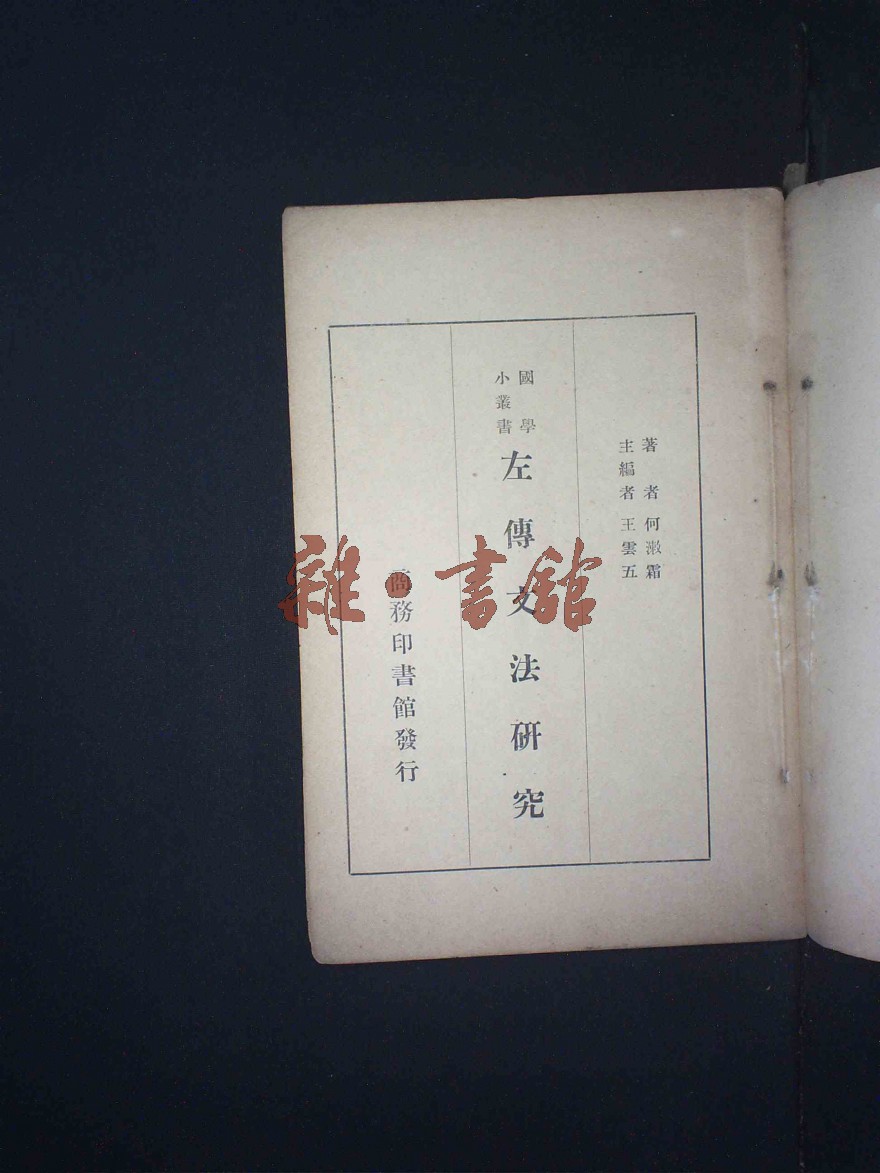 著者何漱霜
主編者王雲五
國學
小叢書
左傳文法研究
商務印書館發行
雜·書館